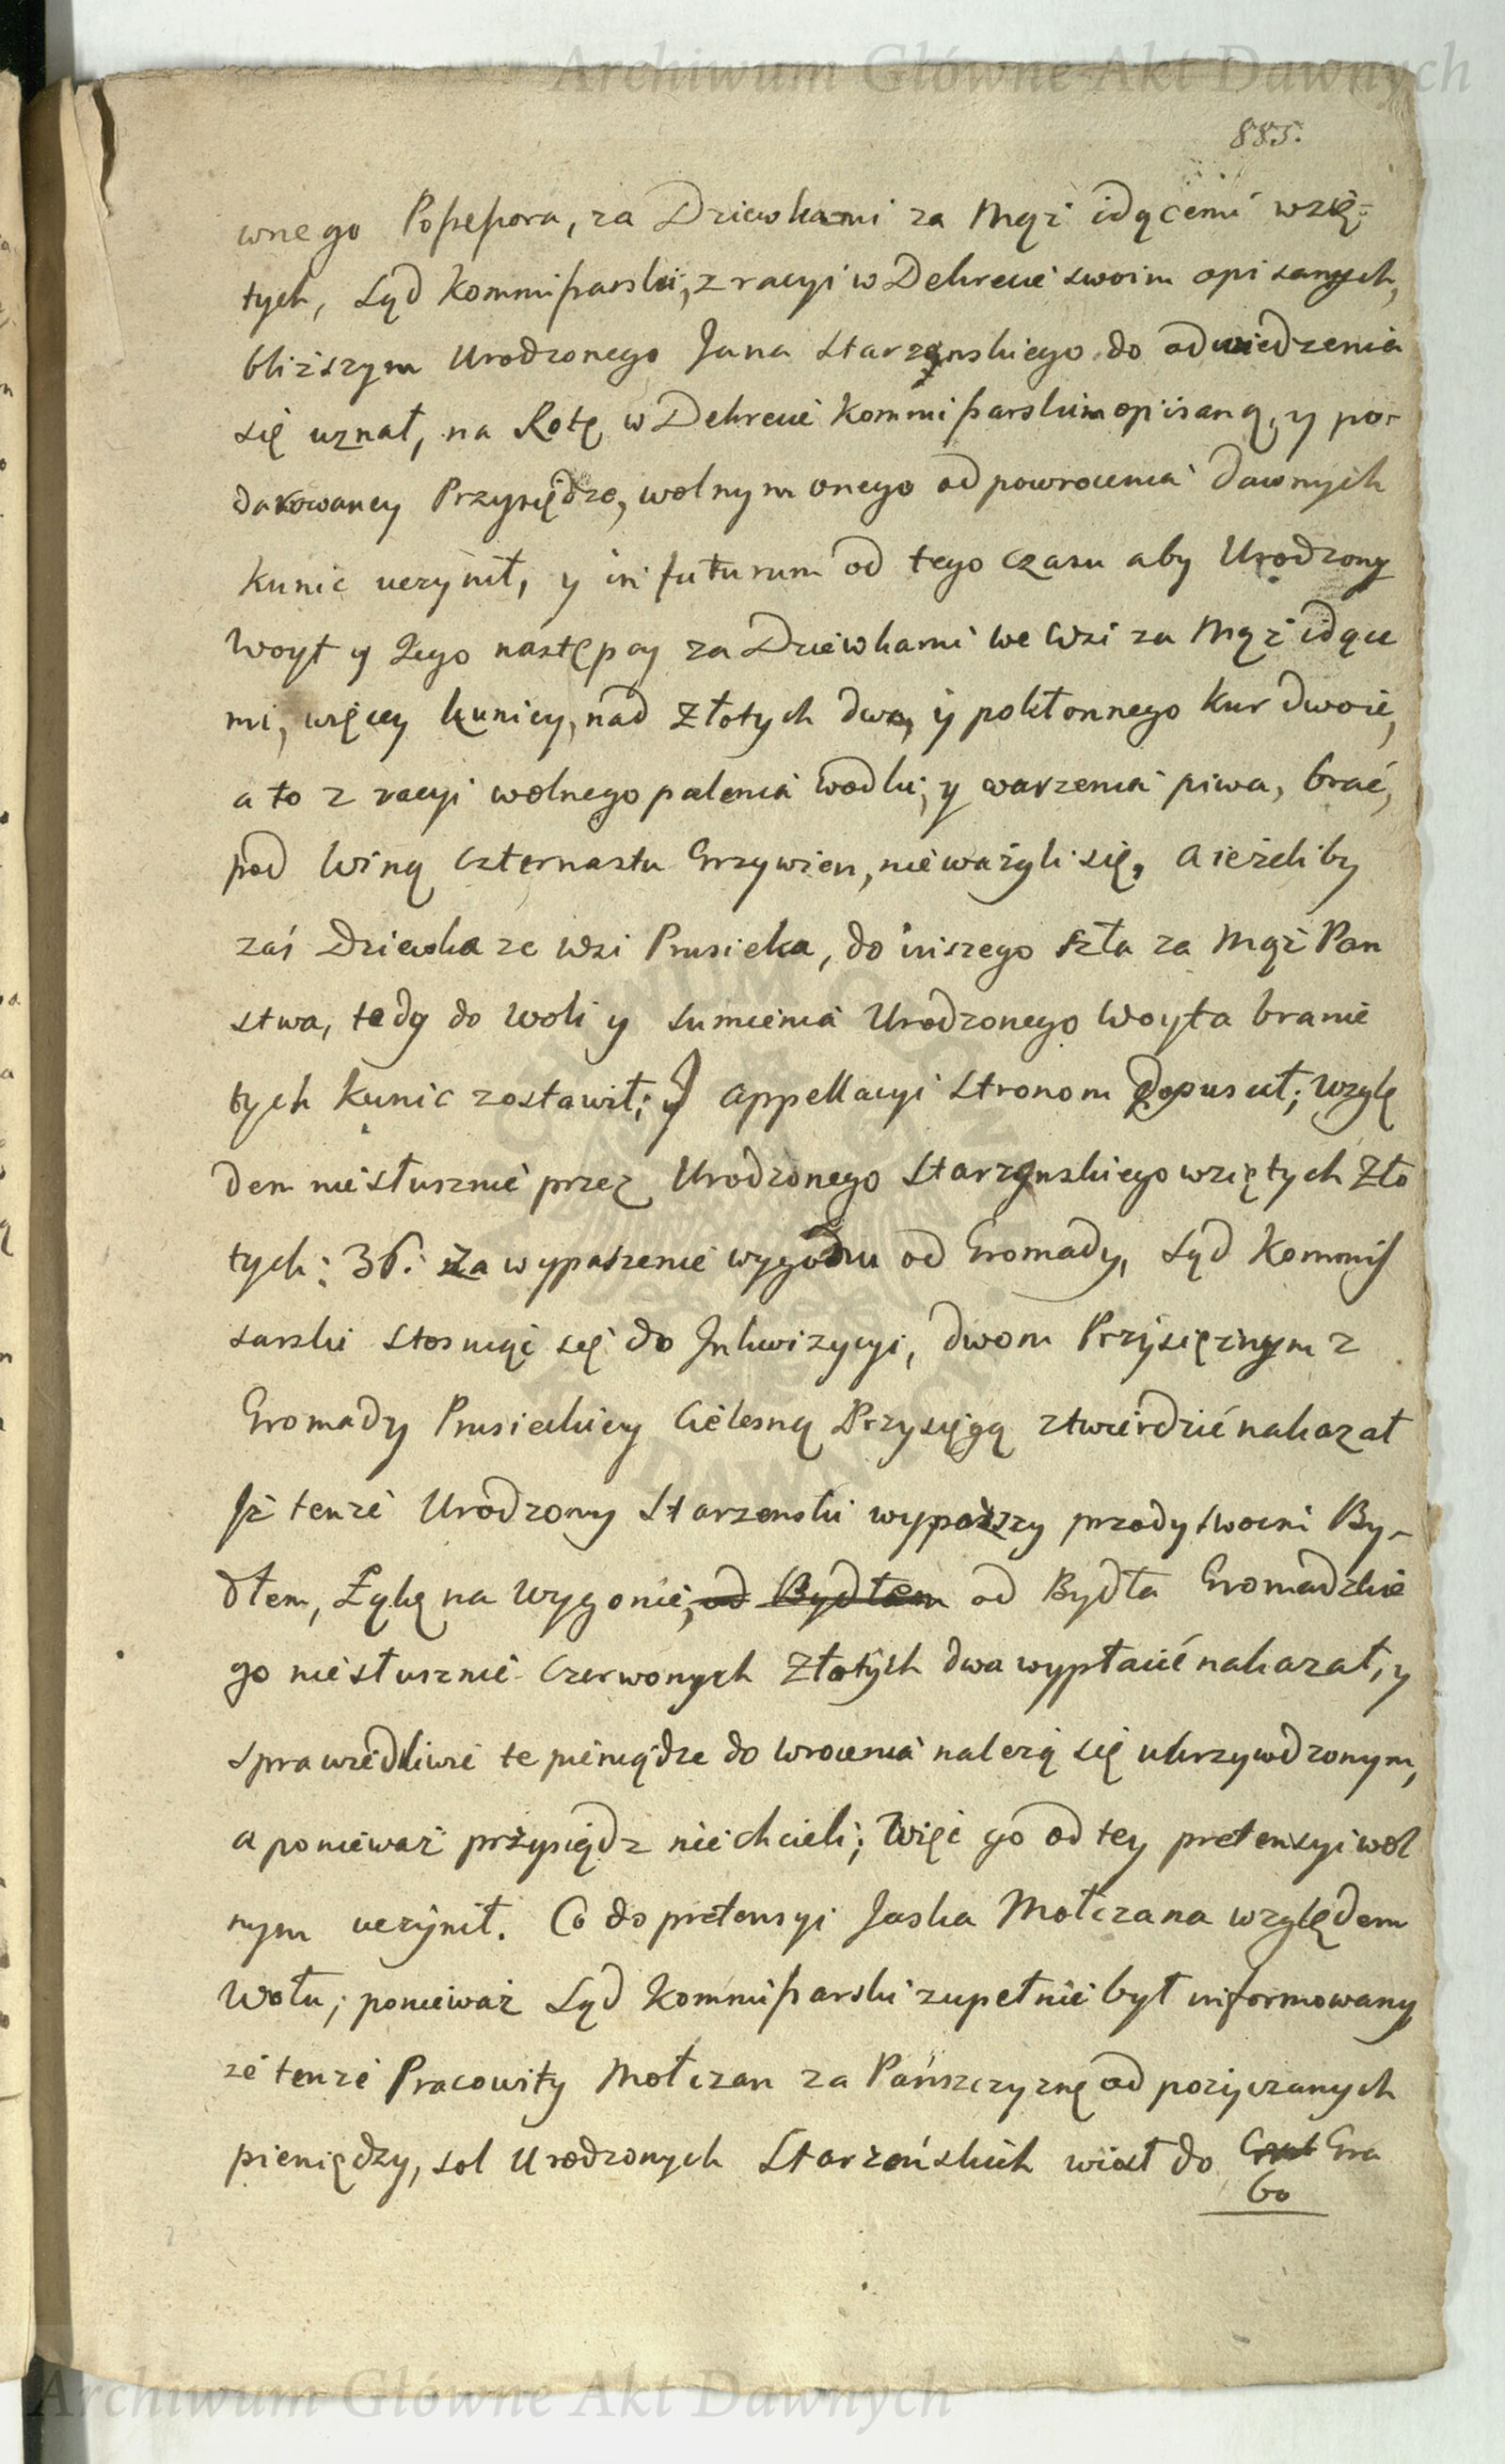 Archiwum Główne Akt Dawnych
885.
wnego Possessora, za Dziewkami za Mąż idącemi wzię-
tych, Sąd Kommissarski, z racyi w Dekrecie swoim opisanych,
bliższym Urodzonego Jana Starzynskiego do odwiedzenia
się uznał, na Rotę w Dekrecie Kommissarskim opisaną, y po-
dakowaney Przysiędze, wolnym onego od powrocenia dawnych
Kunic uczynił, y in futurum od tego czasu aby Urodzony
Woyt y Jego następcy za Dziewkami we Wsi za Mąż idące
mi, więcey kunicy, nad Złotych dwa, y pokłonnego Kur dwoie,
a to z racyi wolnego palenia wodki, y warzenia piwa, brać,
pod Winą Czternastu Grzywien, nieważyli się, a ieżeliby
zaś Dziewka ze Wsi Prusieka, do inszego szła za Mąż Pan
stwa, tedy do woli y sumienia Urodzonego Woyta branie
tych Kunic zostawił; y Appellacyi Stronom dopuscił; Wzglę
dem niesłusznie przez Urodzonego Starzynskiego wziętych Zło
tych: 36: za wypaszenie wygonu od Gromady, Sąd Kommis
sarski stosuiąc się do Inkwizycyi, dwom Przysięznym z
Gromady Prusieckiey Cielesną Przysięgą ztwierdzić nakazał
Iż tenże Urodzony Starzenski wypaszszy przody swoim By-
dłem, Łąkę na Wygonie, od Bydłem od Bydła Gromadzkie
go niesłusznie Czerwonych Złotych dwa wypłacić nakazał, y
sprawiedliwie te pieniądze do wrocenia należą się ukrzywdzonym,
a ponieważ przysiądz niechcieli; Więc go od tey pretensyi wol
nym uczynił. Co do pretensyi Jaska Mołczana względem
Wołu; ponieważ Sąd Kommissarski zupełnie był informowany
że tenże Pracowity Mołczan za Pańszczyznę od pożyczanych
pieniędzy, sol Urodzonych Starzeńskich wiozł do Gra
bo
Archiwum Główne Akt Dawnych